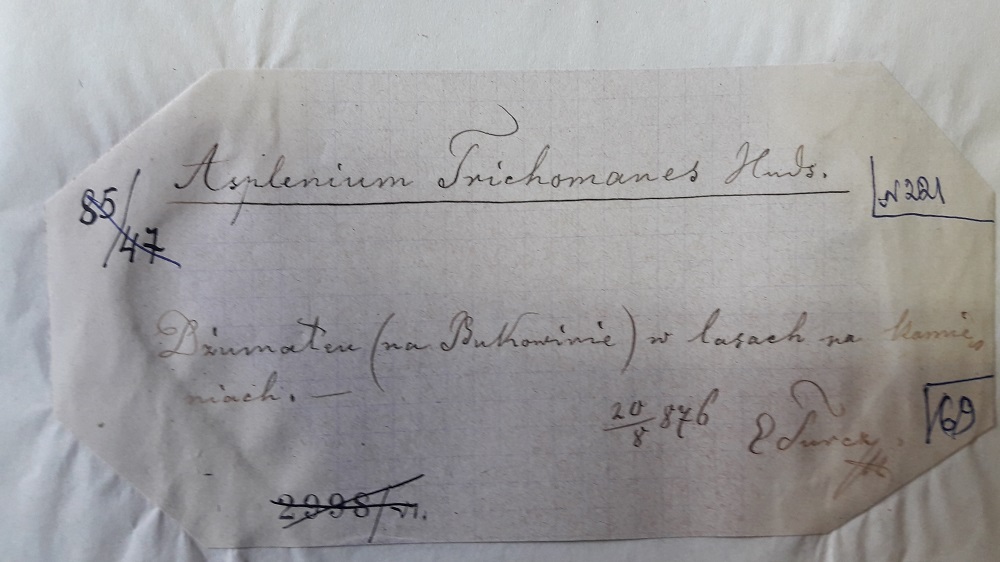 Asplenium Trichomanes Huds.
N 221
85/47
Dżumaten (na Bukowinie) w lasach na kamie
niach. —
20/8 876
E Turcz
69
2998/VI.